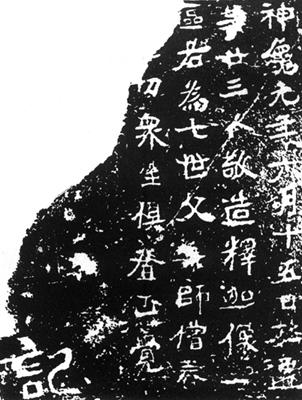 神龜元年六月十五日杜遷
等廿三人敬造釋迦像一
區若為七世父母師僧眷
一切眾生俱登正覺
記